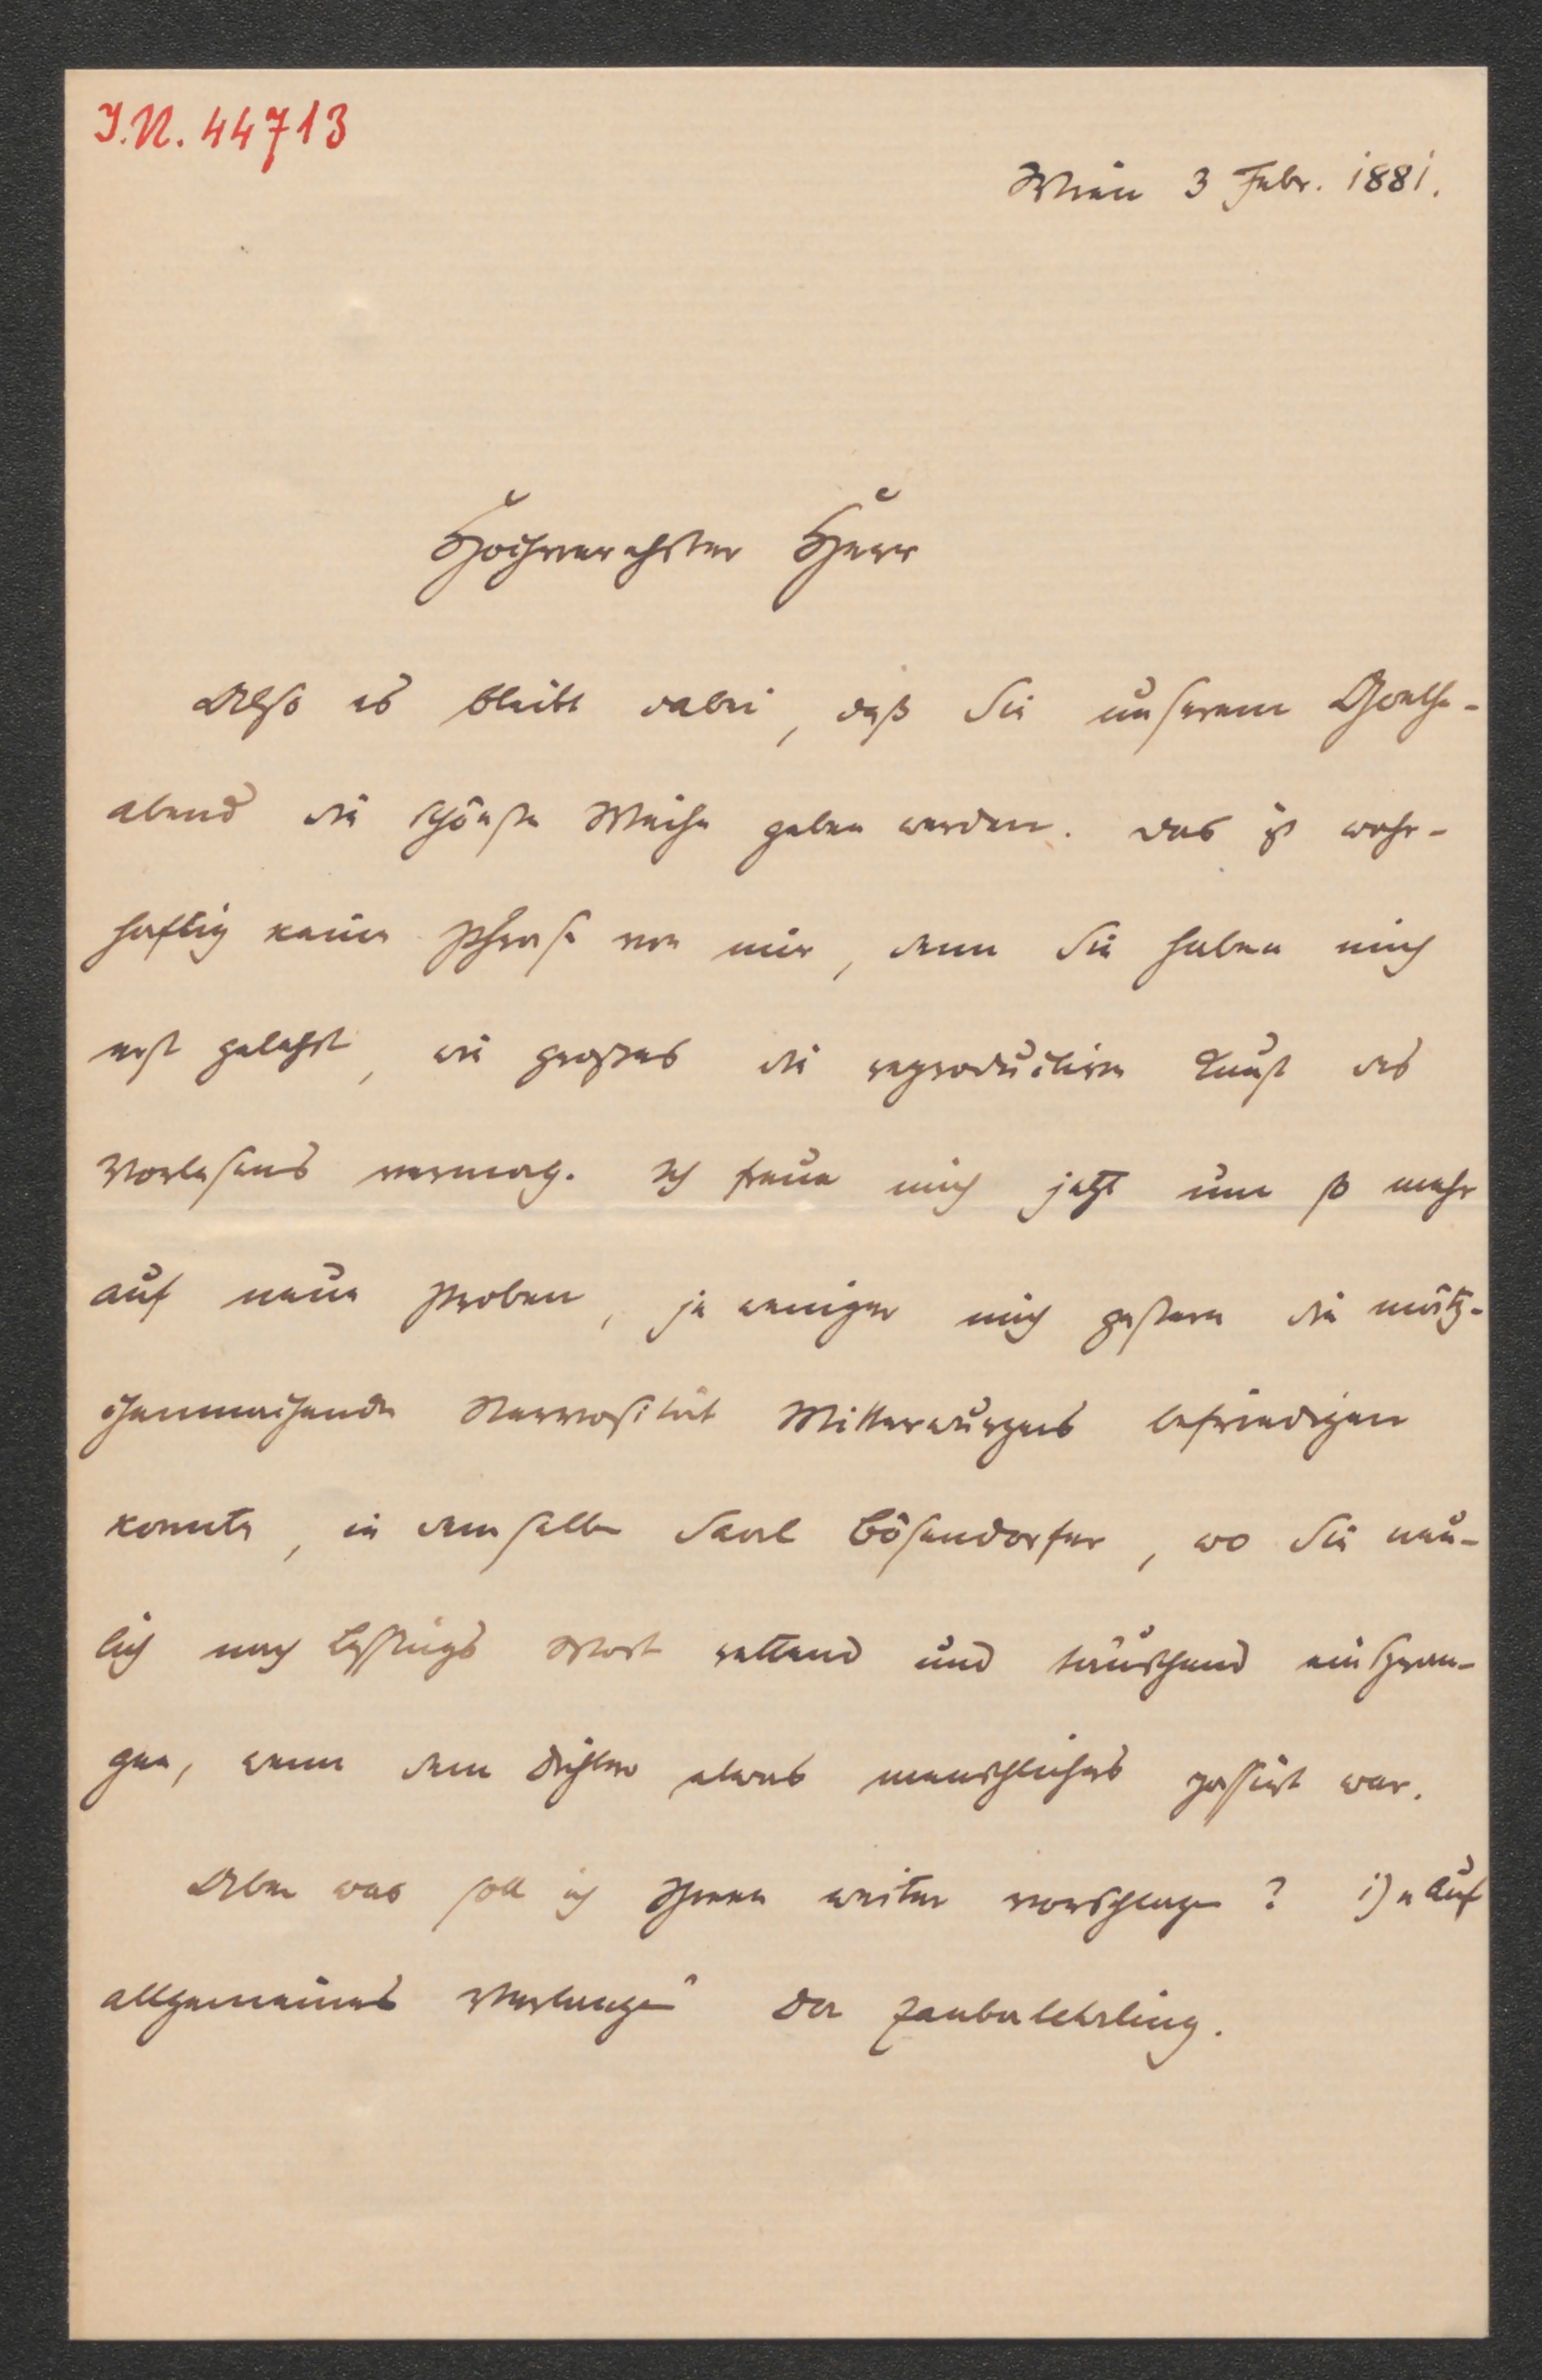 I.N. 44713
Wien 3 Febr. 1881.
Hochverehrter Herr
Also es bleibt dabei, daß Sie unserem Goethe-
abend die schönste Weihe geben werden. Das ist wahr-
haftig keine Phrase von mir, denn Sie haben mich
erst gelehrt, wie großes die reproductive Kunst des
Vorlesens vermag. Ich freue mich jetzt um so mehr
auf neue Proben, je weniger mich gestern die mätz-
chenmachende Nervosität Mitterwurzers befriedigen
konnte, in demselben Saal Bösendorfer, wo Sie neu-
lich nach Lessings Wort rettend und täuschend einspran-
gen, wenn dem Dichter etwas menschliches passirt war.
Aber was soll ich Ihnen weiter vorschlagen? 1) „Auf
allgemeines Verlangen“ Der Zauberlehrling.